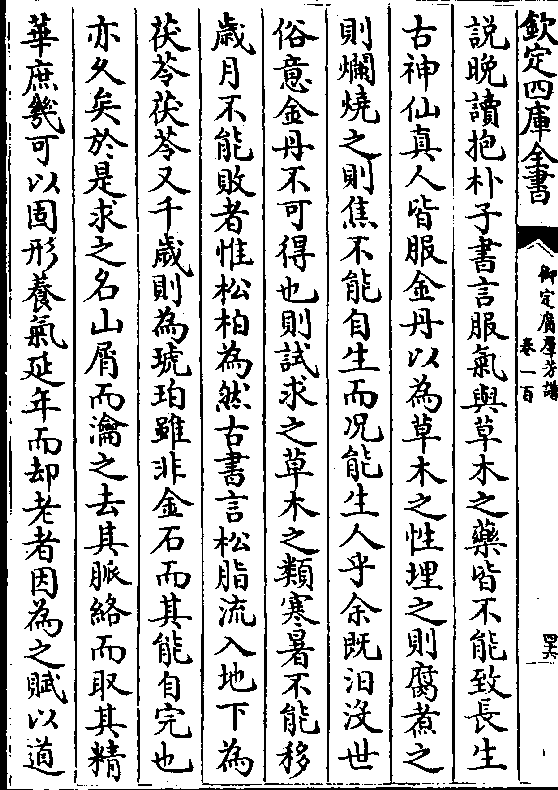 欽定四庫全書
御定廣羣芳譜
卷一百
四六
說晚讀抱朴子書言服氣與草木之藥皆不能致長生
古神仙真人皆服金丹以為草木之性埋之則腐煮之
則爛燒之則焦不能自生而况能生人乎余既汩没世
俗意金丹不可得也則試求之草木之類寒暑不能移
歲月不能敗者惟松柏為然古書言松脂流入地下為
茯苓茯苓又千歲則為琥珀雖非金石而其能自完也
亦久矣於是求之名山屑而瀹之去其脈絡而取其精
華庶幾可以固形養氣延年而却老者因為之賦以道